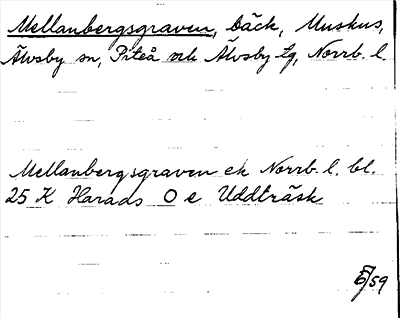 Mellanbergsgraven, bäck, Muskus,
Älvsby sn, Piteå och Älvsby tg, Norrb. l.
Mellanbergsgraven ek Norrb. l. bl.
25 K Harads O e Uddträsk
59